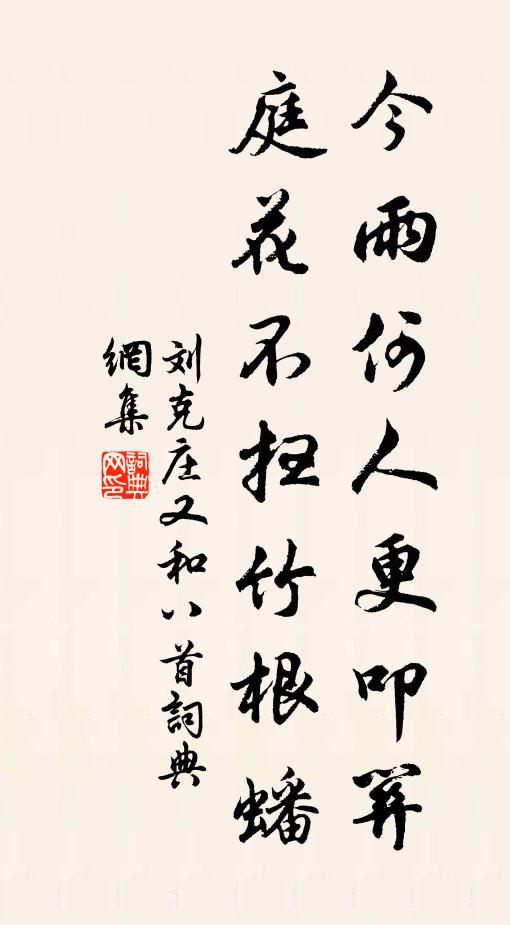 今雨何人更叩關
庭花不扫竹根蟠
刘克庄又和八首詞典
網集
詞典网印